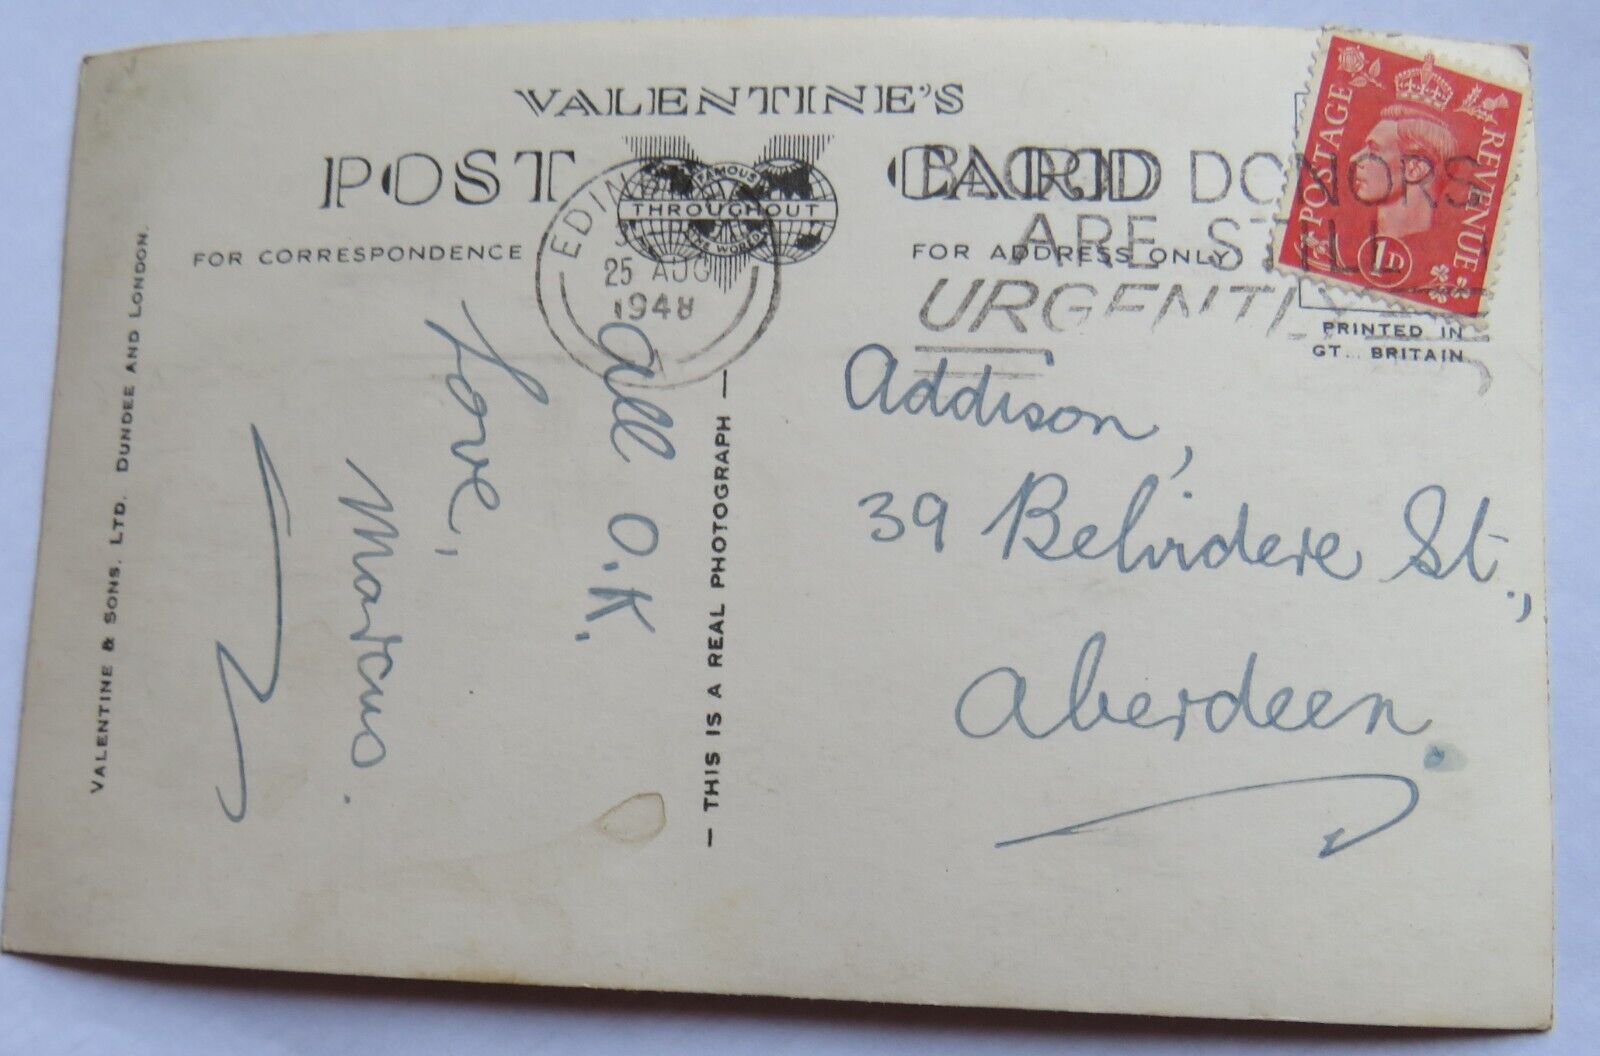 VALENTINE'S
POST CARD
FAMOUS
THROUGHOUT
THE WORLD
FOR CORRESPONDENCE
FOR ADDRESS ONLY
25 AUG
1948
BLOOD DONORS
ARE STILL
URGENTLY
POSTAGE
REVENUE
1D
PRINTED IN
GT. BRITAIN
All O.K.
Love,
Marcus.
Addison,
39 Belvidere St.,
Aberdeen.
— THIS IS A REAL PHOTOGRAPH —
VALENTINE & SONS, LTD. DUNDEE AND LONDON.